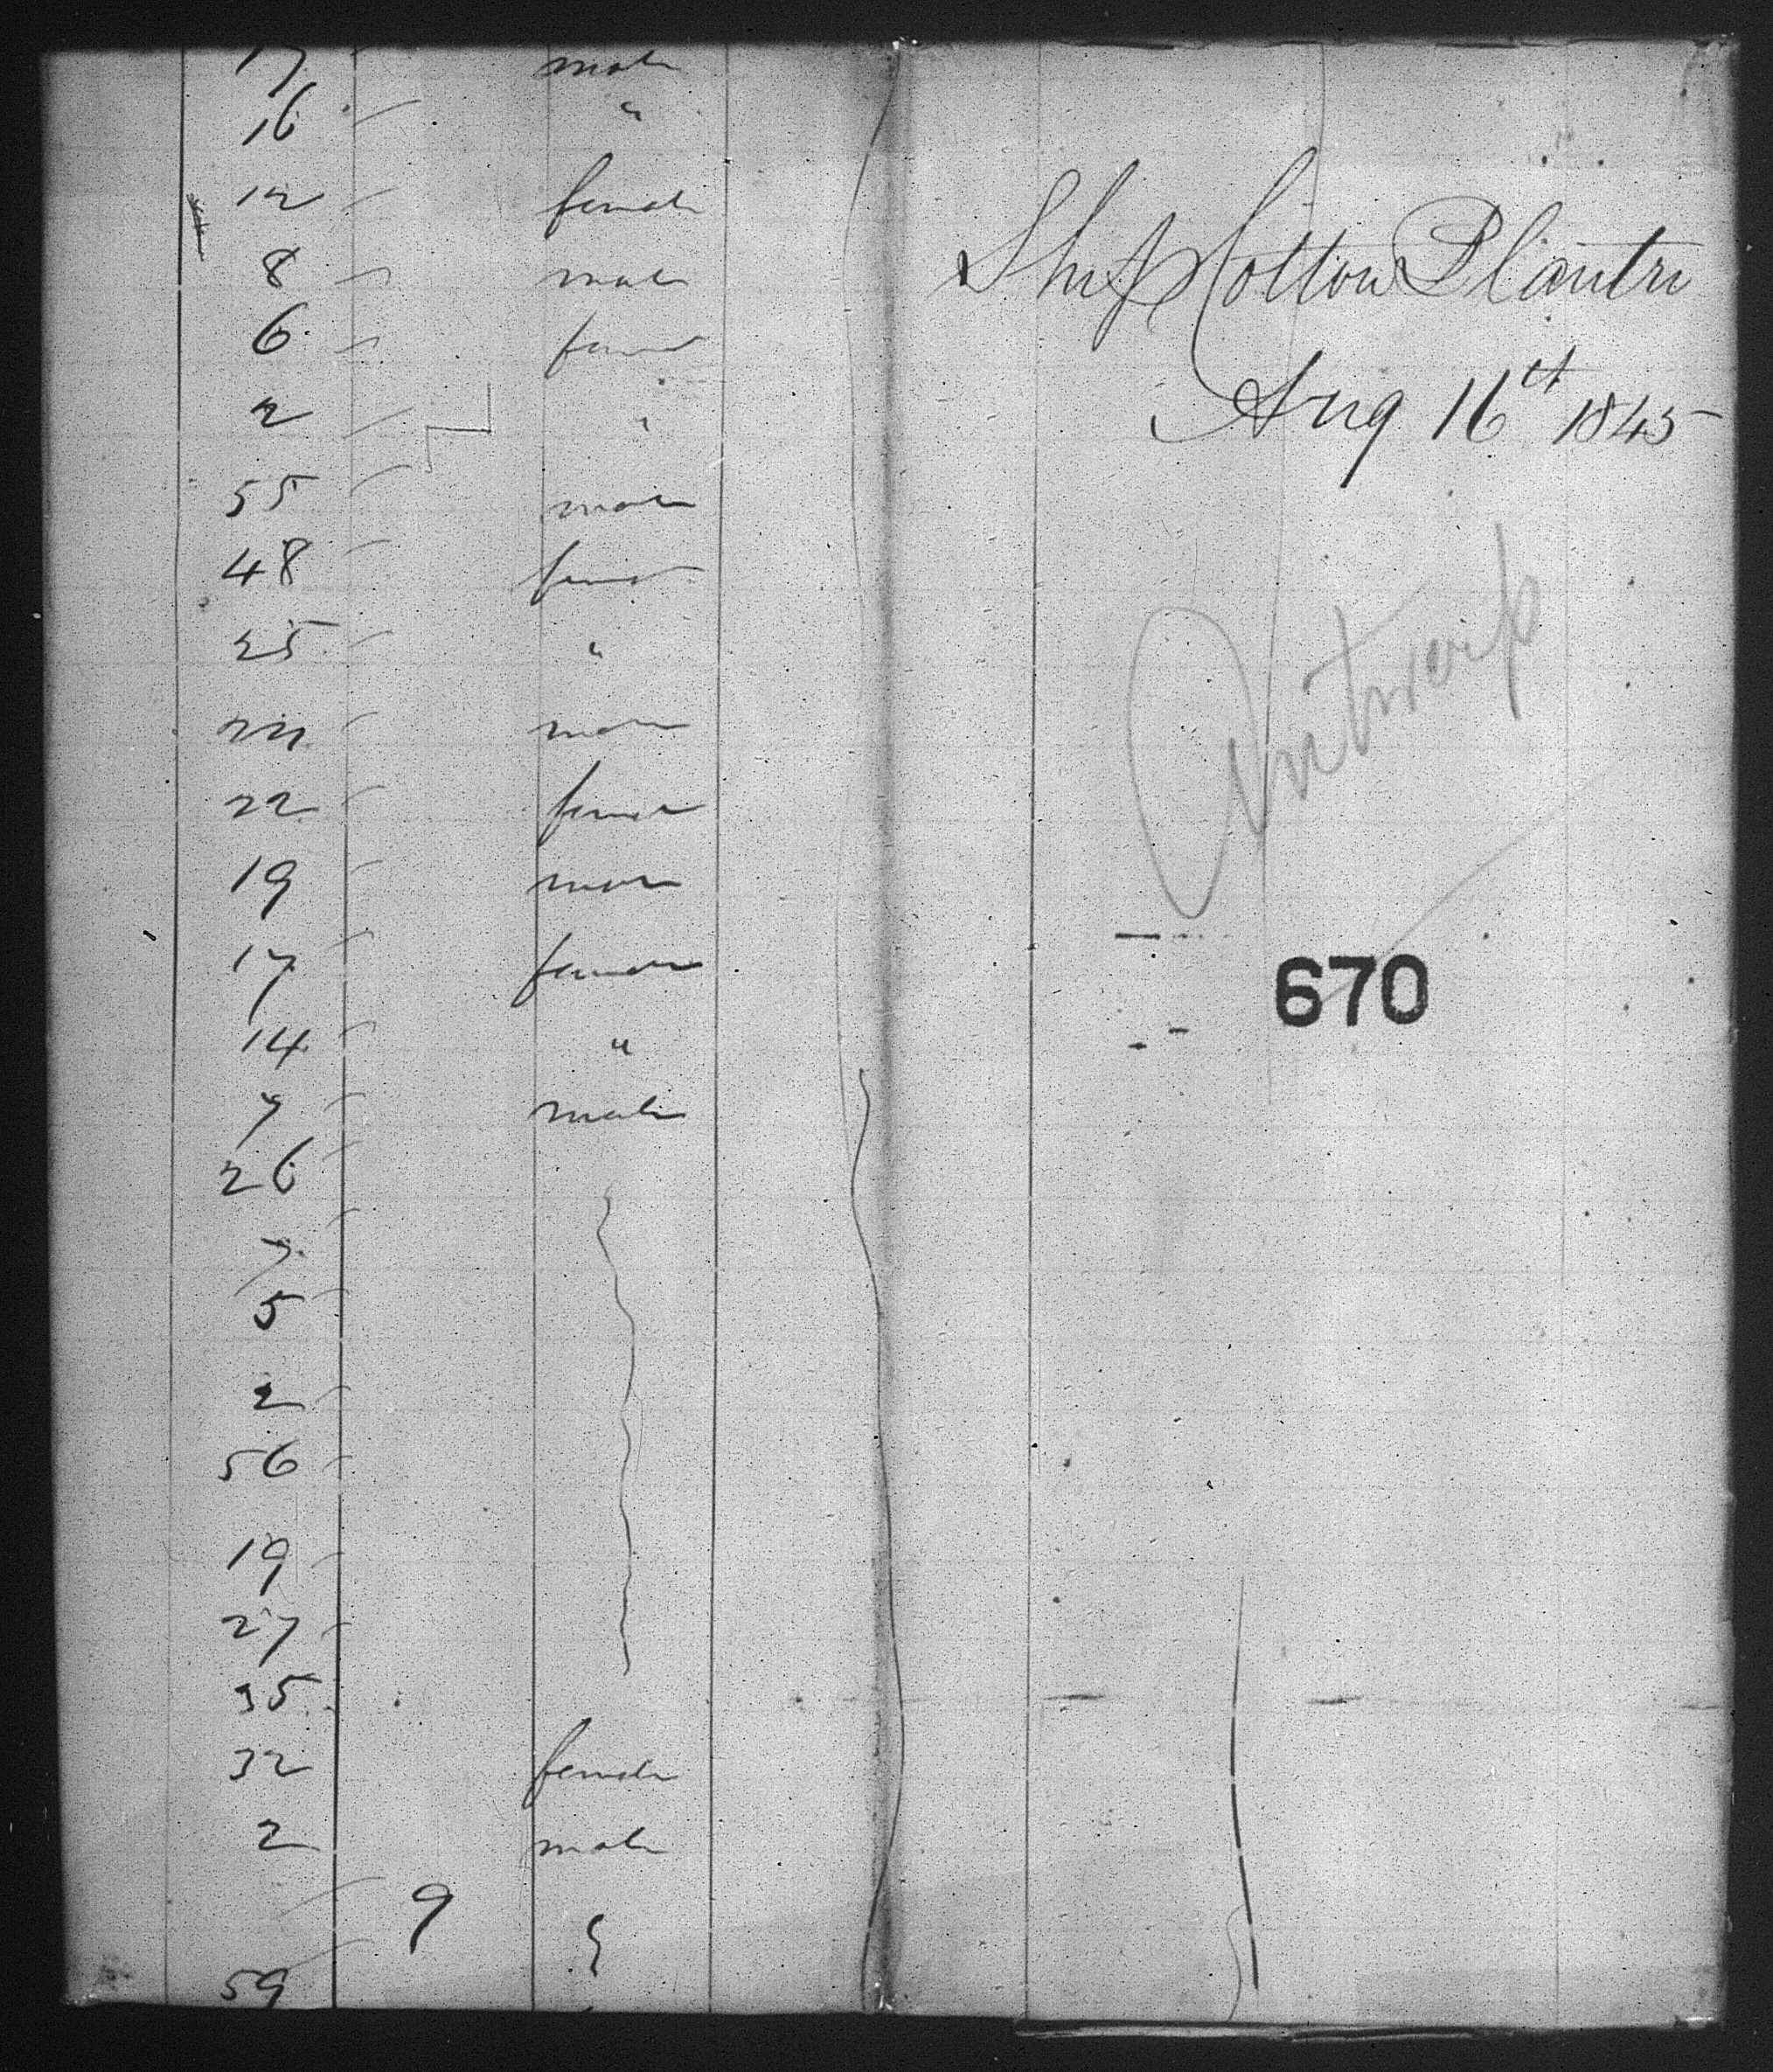 17 male
16 "
12 female
8 male
6 fema
2 "
55 male
48 fema
25 "
male
22 female
19 male
17 female
14 "
7 male
26
7
5
2
56
19
27
35
32 female
2 male
9
59
Ship Cotton Planter
Aug 16th 1845
Antwerp
670